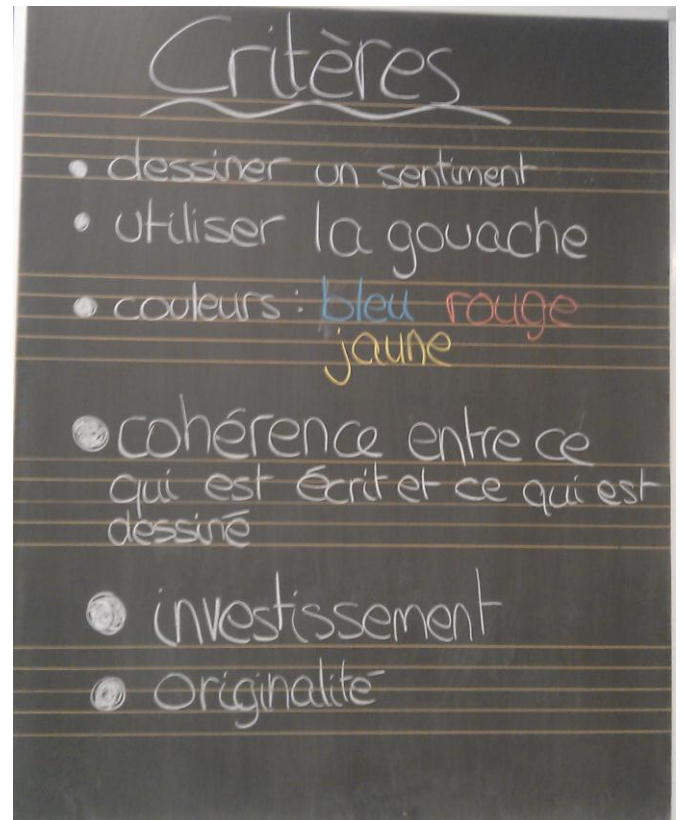 Critères
• dessiner un sentiment
• utiliser la gouache
• couleurs : bleu rouge
jaune
• cohérence entre ce
qui est écrit et ce qui est
dessiné
• investissement
• originalité